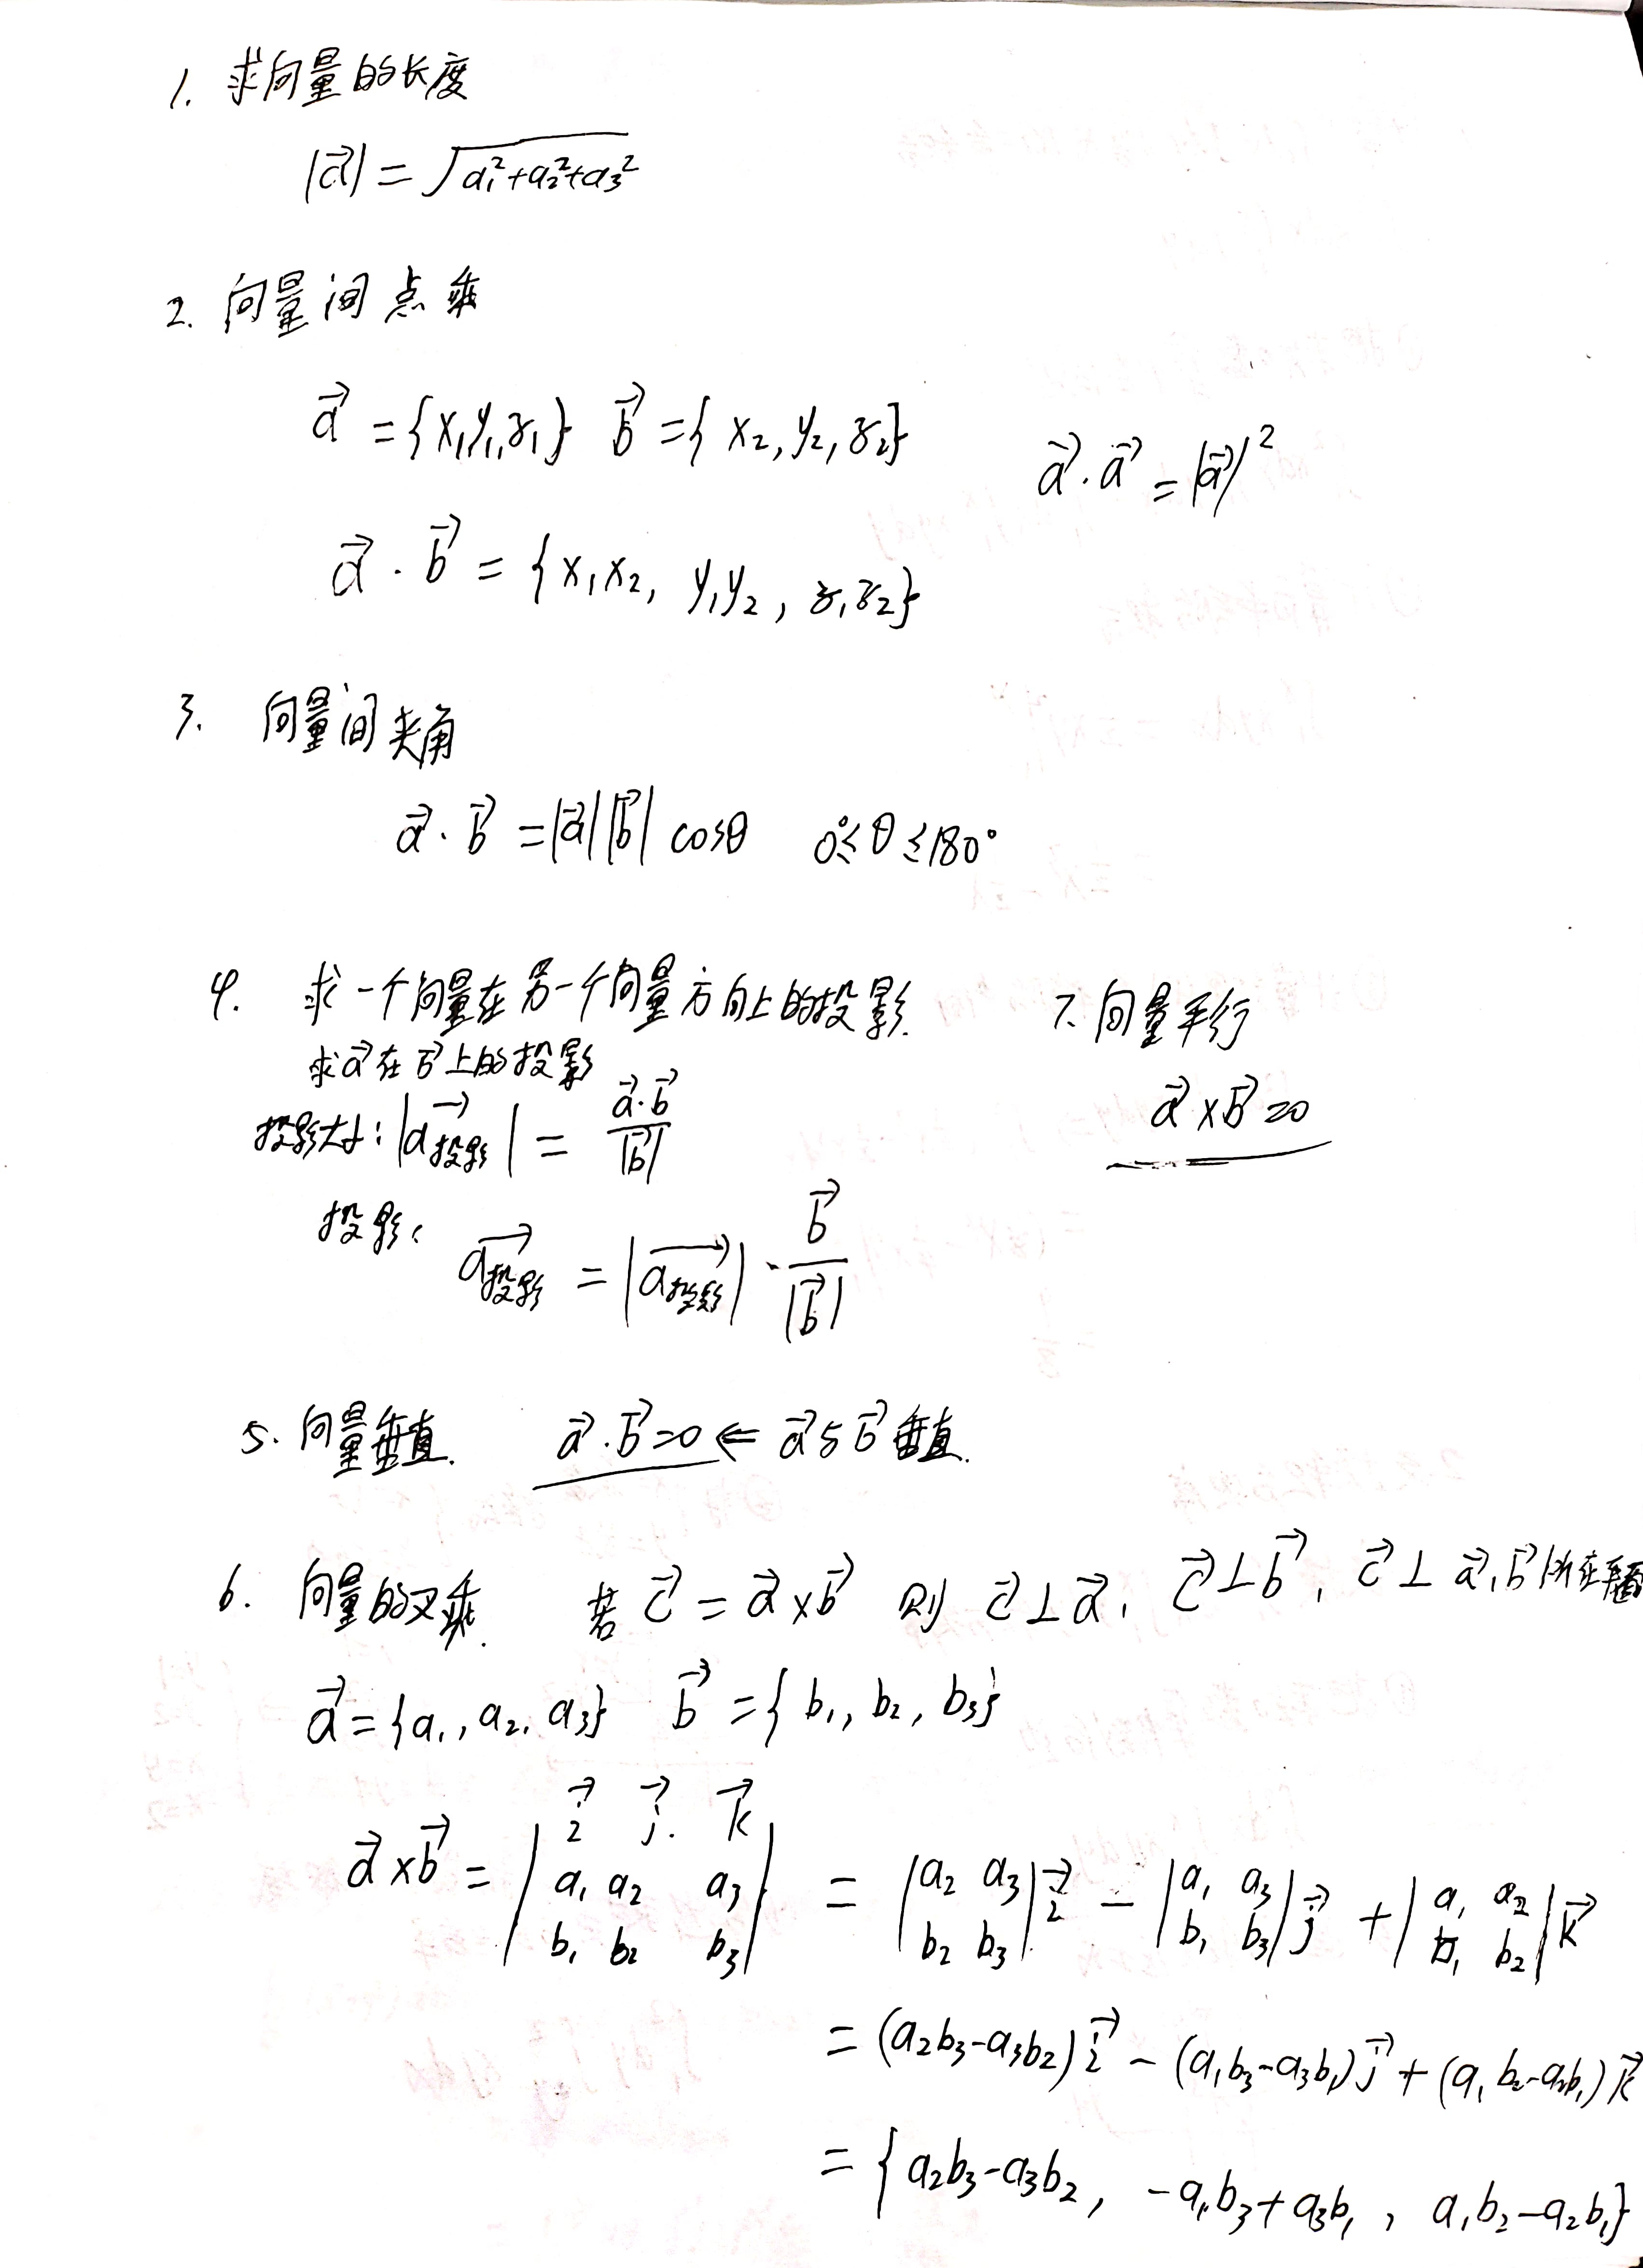 1. 求向量的长度
|a⃗| = √(a₁²+a₂²+a₃²)
2. 向量间点乘
a⃗ = {x₁,y₁,z₁} b⃗ = {x₂, y₂, z₂}
a⃗·a⃗ = |a⃗|²
a⃗·b⃗ = {x₁x₂, y₁y₂, z₁z₂}
3. 向量间夹角
a⃗·b⃗ = |a⃗||b⃗| cosθ 0°≤θ≤180°
4. 求一个向量在另一个向量方向上的投影.
求a⃗在b⃗上的投影
投影大小: |a投影⃗| = a⃗·b⃗/|b⃗|
投影: a投影⃗ = |a投影⃗|·b⃗/|b⃗|
7. 向量平行
a⃗×b⃗=0
5. 向量垂直. a⃗·b⃗=0 ⇐ a⃗与b⃗垂直.
6. 向量的叉乘. 若 c⃗ = a⃗×b⃗ 则 c⃗⊥a⃗, c⃗⊥b⃗, c⃗⊥a⃗,b⃗所在平面
a⃗ = {a₁, a₂, a₃} b⃗ = {b₁, b₂, b₃}
a⃗×b⃗ = |i⃗ j⃗ k⃗; a₁ a₂ a₃; b₁ b₂ b₃| = |a₂ a₃; b₂ b₃|i⃗ − |a₁ a₃; b₁ b₃|j⃗ + |a₁ a₂; b₁ b₂|k⃗
= (a₂b₃−a₃b₂)i⃗ − (a₁b₃−a₃b₁)j⃗ + (a₁b₂−a₂b₁)k⃗
= {a₂b₃−a₃b₂, −a₁b₃+a₃b₁, a₁b₂−a₂b₁}